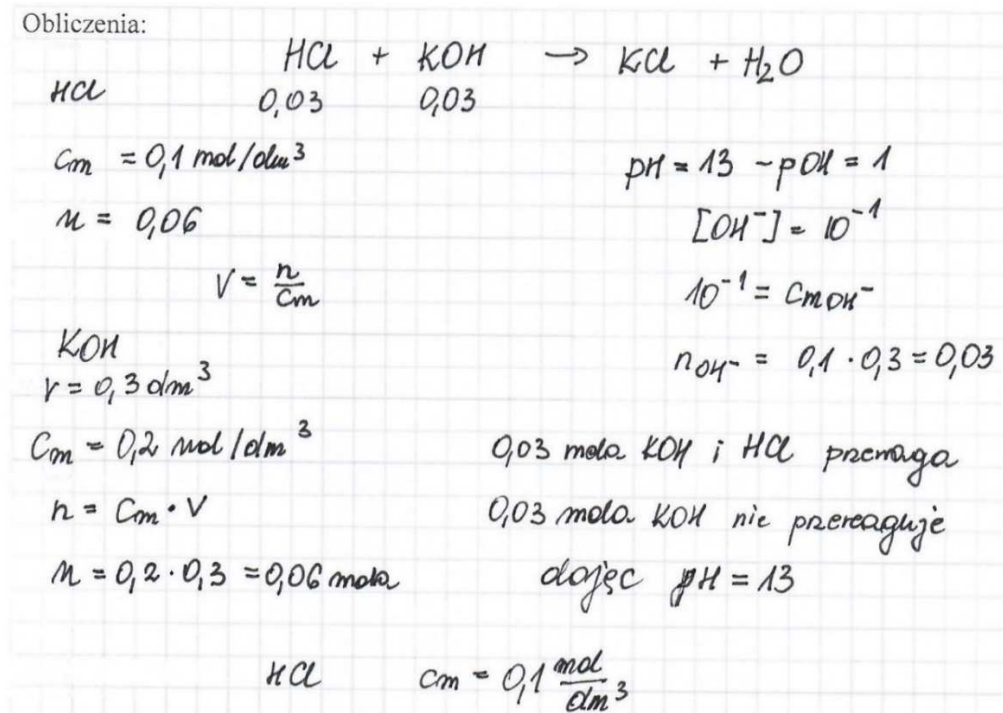 Obliczenia:
HCl + KOH → KCl + H₂O
HCl 0,03 0,03
Cm = 0,1 mol/dm³
n = 0,06
V = n/Cm
KOH
V = 0,3 dm³
Cm = 0,2 mol/dm³
n = Cm · V
n = 0,2 · 0,3 = 0,06 mola
pH = 13 - pOH = 1
[OH⁻] = 10⁻¹
10⁻¹ = CmOH⁻
nOH⁻ = 0,1 · 0,3 = 0,03
0,03 mola KOH i HCl przereaga
0,03 mola KOH nie przereaguje
dając pH = 13
HCl Cm = 0,1 mol/dm³